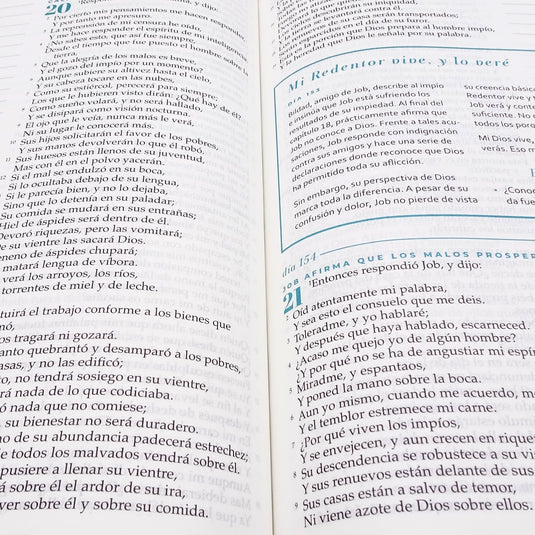 20
1 Respondió
2 Por cierto mis pensamientos me hacen responder,
Y por tanto me apresuro.
3 La reprensión de mi censura he oído,
Y me hace responder el espíritu de mi inteligencia.
4 ¿No sabes esto, que así fue siempre,
Desde el tiempo que fue puesto el hombre sobre la
tierra,
5 Que la alegría de los malos es breve,
Y el gozo del impío por un momento?
6 Aunque subiere su altivez hasta el cielo,
Y su cabeza tocare en las nubes,
7 Como su estiércol, perecerá para siempre;
Los que le hubieren visto dirán: ¿Qué hay de él?
8 Como sueño volará, y no será hallado,
Y se disipará como visión nocturna.
9 El ojo que le veía, nunca más le verá,
Ni su lugar le conocerá más.
10 Sus hijos solicitarán el favor de los pobres,
Y sus manos devolverán lo que él robó.
11 Sus huesos están llenos de su juventud,
Mas con él en el polvo yacerán.
12 Si el mal se endulzó en su boca,
Si lo ocultaba debajo de su lengua,
Si le parecía bien, y no lo dejaba,
Sino que lo detenía en su paladar;
Su comida se mudará en sus entrañas;
Hiel de áspides será dentro de él.
Devoró riquezas, pero las vomitará;
De su vientre las sacará Dios.
Veneno de áspides chupará;
matará lengua de víbora.
verá los arroyos, los ríos,
torrentes de miel y de leche.
tituirá el trabajo conforme a los bienes que
mó,
os tragará ni gozará.
anto quebrantó y desamparó a los pobres,
asas, y no las edificó;
to, no tendrá sosiego en su vientre,
ará nada de lo que codiciaba.
ó nada que no comiese;
, su bienestar no será duradero.
no de su abundancia padecerá estrechez;
de todos los malvados vendrá sobre él.
pusiere a llenar su vientre,
á sobre él el ardor de su ira,
ver sobre él y sobre su comida.
Los cielos descubrirán su iniquidad,
Y la tierra se levantará contra él.
de su casa serán transportados;
en el día de su furor.
Y la heredad que Dios le señala por su palabra.
Mi Redentor vive, y lo veré
DÍA 153
Bildad, amigo de Job, describe al impío
e insinúa que Job está sufriendo los
resultados de su impiedad. Al final del
capítulo 18, prácticamente afirma que
Job no conoce a Dios. Frente a tales acu-
saciones, Job responde con indignación
contra sus amigos y hace una serie de
declaraciones donde reconoce que Dios
ha permitido toda su aflicción.
Sin embargo, su perspectiva de Dios
marca toda la diferencia. A pesar de su
confusión y dolor, Job no pierde de vista
su creencia básica
Redentor vive y
Job verá y cont
suficiente. No
todos los porq
Mi Dios vive,
verás. Eso m
¿Conoc
da fue
día 154
JOB AFIRMA QUE LOS MALOS PROSPER
21
1 Entonces respondió Job, y dijo:
2 Oíd atentamente mi palabra,
Y sea esto el consuelo que me deis.
3 Toleradme, y yo hablaré;
Y después que haya hablado, escarneced.
4 ¿Acaso me quejo yo de algún hombre?
¿Y por qué no se ha de angustiar mi espí
5 Miradme, y espantaos,
Y poned la mano sobre la boca.
6 Aun yo mismo, cuando me acuerdo, m
Y el temblor estremece mi carne.
7 ¿Por qué viven los impíos,
Y se envejecen, y aun crecen en rique
8 Su descendencia se robustece a su vi
Y sus renuevos están delante de sus
9 Sus casas están a salvo de temor,
Ni viene azote de Dios sobre ellos.